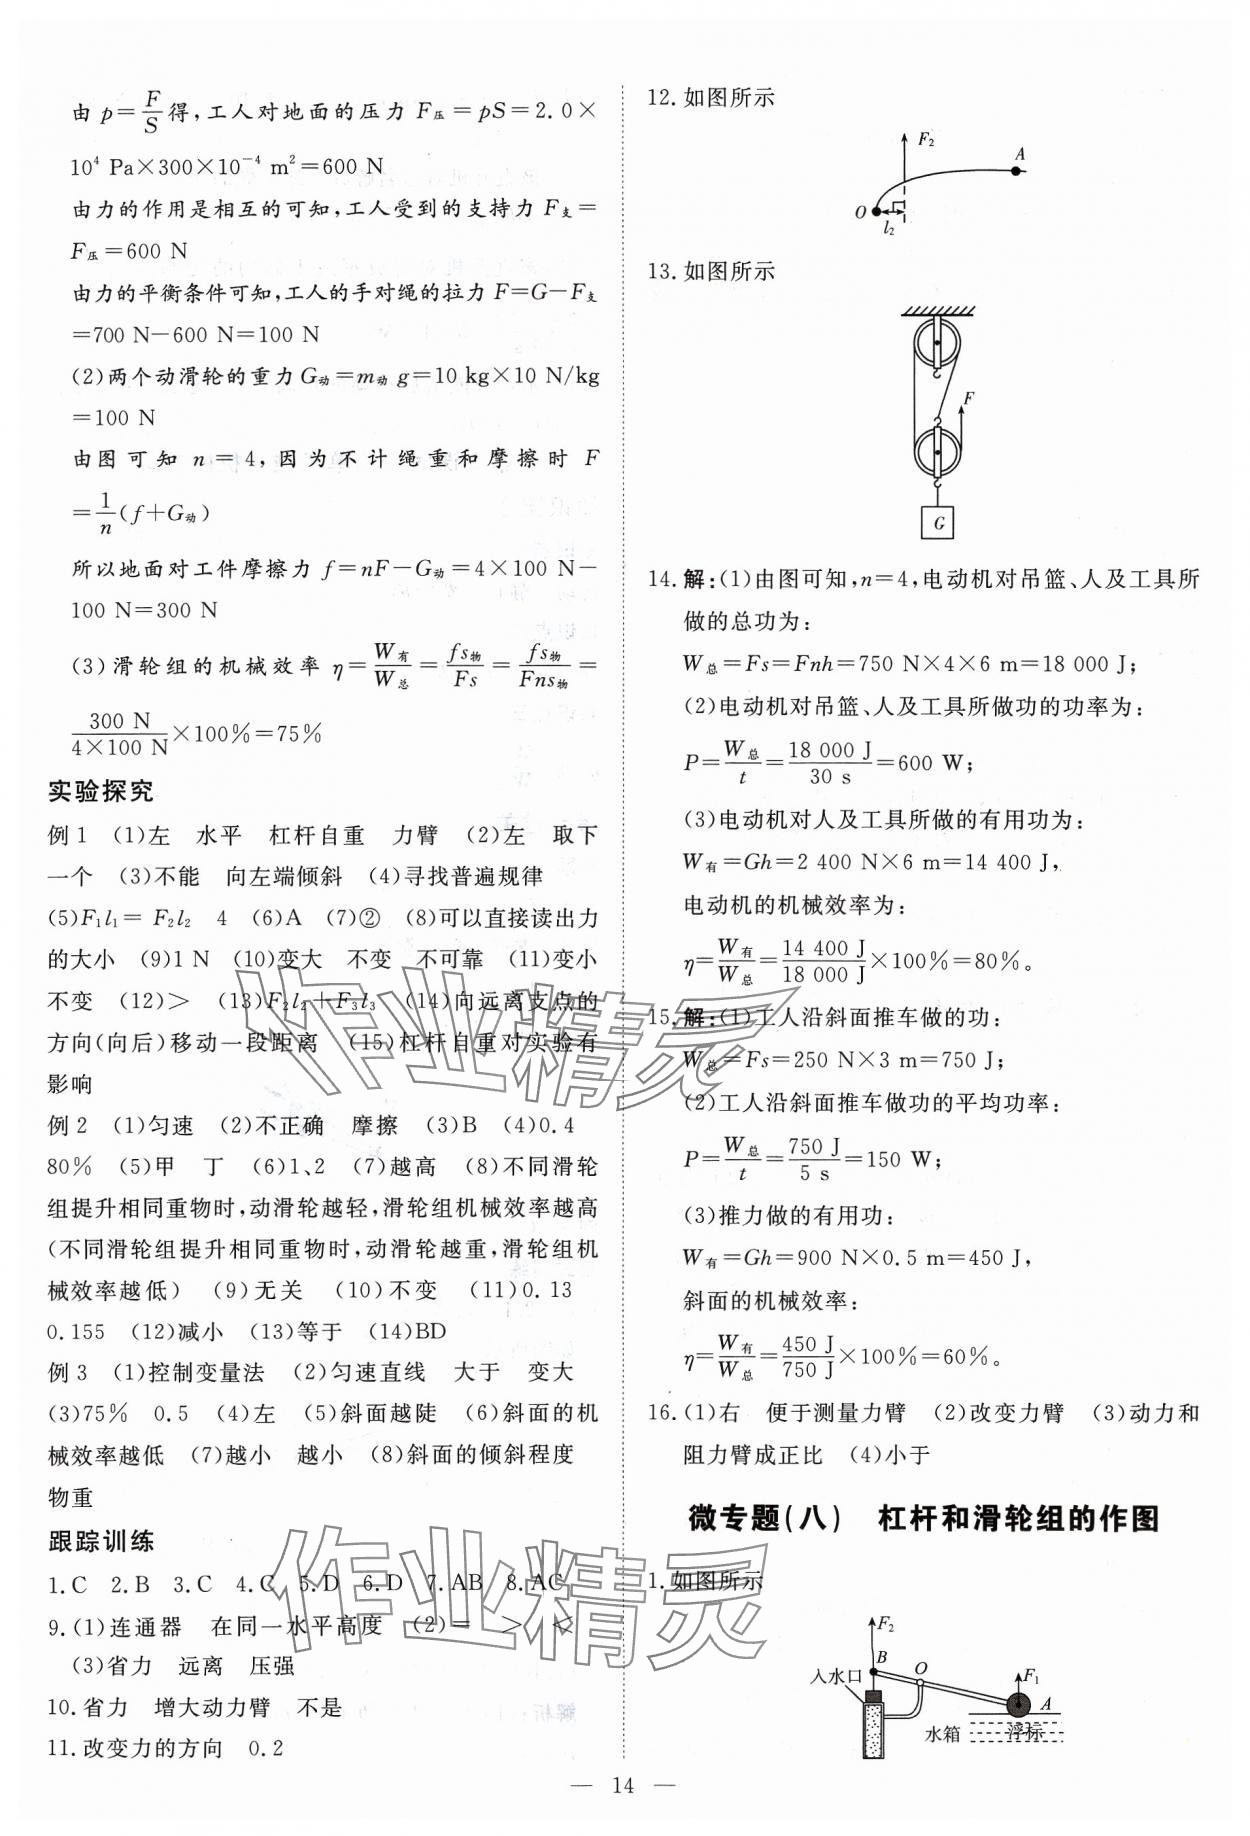 由 p=F/S得,工人对地面的压力 F压=pS=2.0×
10⁴ Pa×300×10⁻⁴ m²=600 N
由力的作用是相互的可知,工人受到的支持力 F支=
F压=600 N
由力的平衡条件可知,工人的手对绳的拉力 F=G-F支
=700 N-600 N=100 N
(2)两个动滑轮的重力G动=m动 g=10 kg×10 N/kg
=100 N
由图可知 n=4,因为不计绳重和摩擦时 F
=1/n(f+G动)
所以地面对工件摩擦力 f=nF-G动=4×100 N-
100 N=300 N
(3)滑轮组的机械效率 η=W有/W总=fs物/Fs=fs物/Fns物=
300 N/4×100 N×100%=75%
实验探究
例1 (1)左 水平 杠杆自重 力臂 (2)左 取下
一个 (3)不能 向左端倾斜 (4)寻找普遍规律
(5)F₁l₁= F₂l₂ 4 (6)A (7)② (8)可以直接读出力
的大小 (9)1 N (10)变大 不变 不可靠 (11)变小
不变 (12)> (13)F₂l₂+F₃l₃ (14)向远离支点的
方向(向后)移动一段距离 (15)杠杆自重对实验有
影响
例2 (1)匀速 (2)不正确 摩擦 (3)B (4)0.4
80% (5)甲 丁 (6)1、2 (7)越高 (8)不同滑轮
组提升相同重物时,动滑轮越轻,滑轮组机械效率越高
(不同滑轮组提升相同重物时,动滑轮越重,滑轮组机
械效率越低) (9)无关 (10)不变 (11)0.13
0.155 (12)减小 (13)等于 (14)BD
例3 (1)控制变量法 (2)匀速直线 大于 变大
(3)75% 0.5 (4)左 (5)斜面越陡 (6)斜面的机
械效率越低 (7)越小 越小 (8)斜面的倾斜程度
物重
跟踪训练
1.C 2.B 3.C 4.C 5.D 6.D 7.AB 8.AC
9.(1)连通器 在同一水平高度 (2)= > <
(3)省力 远离 压强
10.省力 增大动力臂 不是
11.改变力的方向 0.2
12.如图所示
F₂
A
O
l₂
13.如图所示
F
G
14.解:(1)由图可知,n=4,电动机对吊篮、人及工具所
做的总功为:
W总=Fs=Fnh=750 N×4×6 m=18 000 J;
(2)电动机对吊篮、人及工具所做功的功率为:
P=W总/t=18 000 J/30 s=600 W;
(3)电动机对人及工具所做的有用功为:
W有=Gh=2 400 N×6 m=14 400 J,
电动机的机械效率为:
η=W有/W总=14 400 J/18 000 J×100%=80%。
15.解:(1)工人沿斜面推车做的功:
W总=Fs=250 N×3 m=750 J;
(2)工人沿斜面推车做功的平均功率:
P=W总/t=750 J/5 s=150 W;
(3)推力做的有用功:
W有=Gh=900 N×0.5 m=450 J,
斜面的机械效率:
η=W有/W总=450 J/750 J×100%=60%。
16.(1)右 便于测量力臂 (2)改变力臂 (3)动力和
阻力臂成正比 (4)小于
微专题(八) 杠杆和滑轮组的作图
1.如图所示
F₂
B O
入水口 F₁
A
水箱 浮标
— 14 —
作业精灵
作业精灵